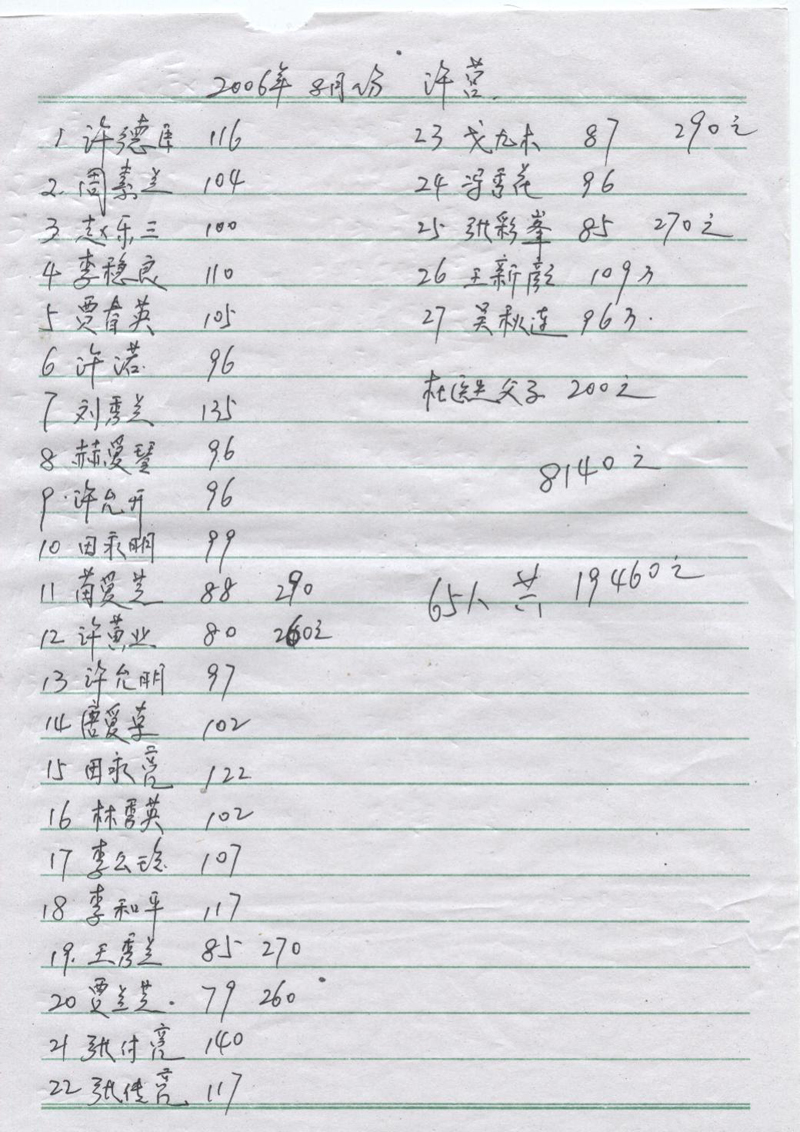 2006年 8月份 许营
1 许德臣 116
2 周素兰 104
3 赵乐三 100
4 李稳良 110
5 贾育英 105
6 许诺 96
7 刘秀兰 135
8 赫爱琴 96
9 许允开 96
10 田永明 99
11 苗爱芝 88 290
12 许黄业 80 260元
13 许允明 97
14 唐爱草 102
15 田永亮 122
16 林秀英 102
17 李公玲 107
18 李和平 117
19 王秀兰 85 270
20 贾兰芝 79 260
21 张付亮 140
22 张传亮 117
23 戈九木 87 290元
24 秀花 96
25 张彩峯 85 270元
26 王新 109
27 吴秋连 96
杜医生父子 200元
8140元
65人 共 19460元